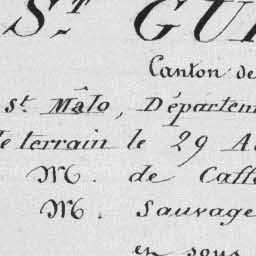 St GU
Canton de
St Mâlo, Départem
le terrain le 29 A
M. de Caff
M. Sauvage
et sous